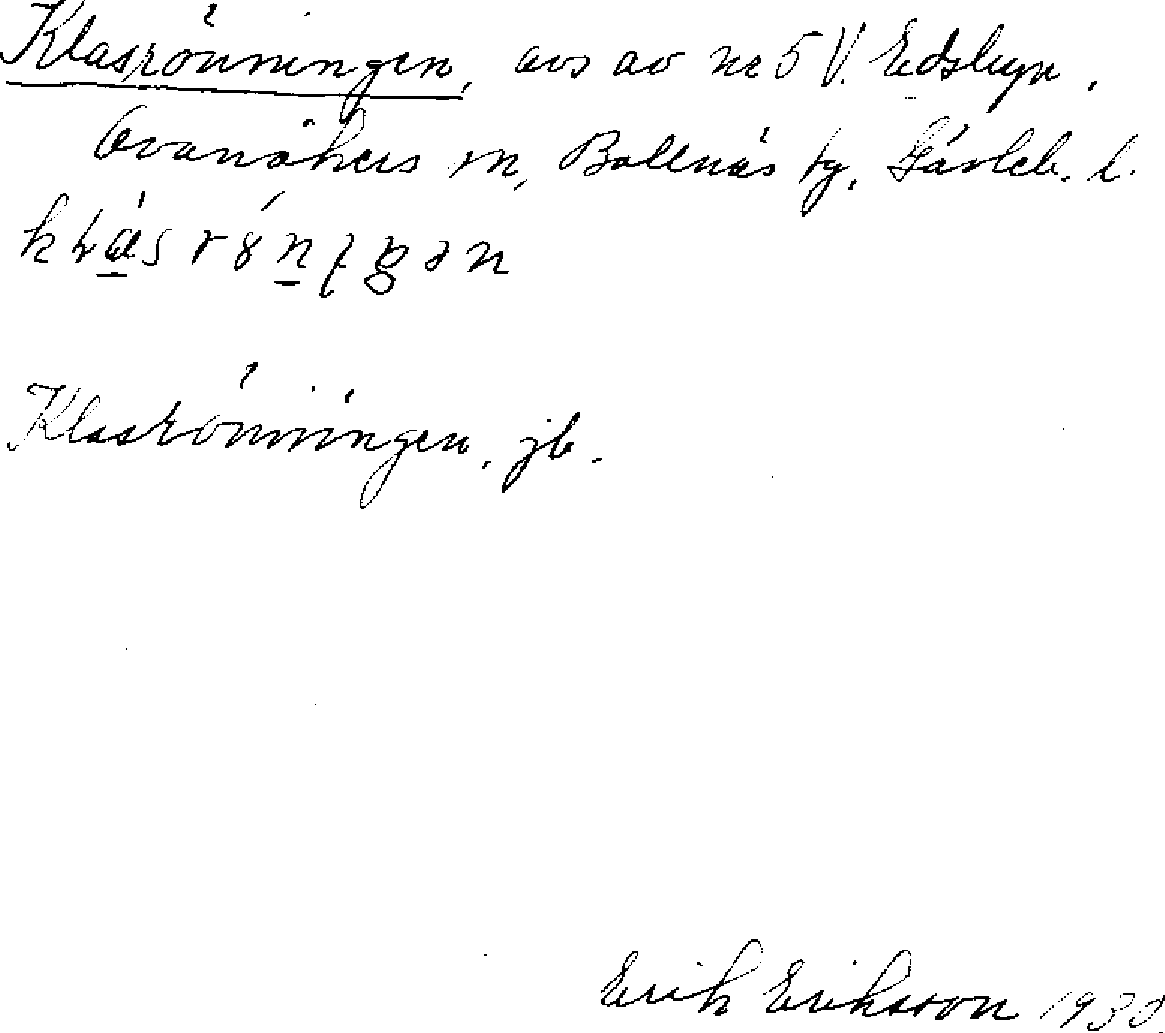 Klasrönningen, avs av nr 5 V. Edsbyn.
Ovanåkers sn, Bollnäs tg, Gävleb. l.
Klasrönningen, jb.
Erik Eriksson 1930